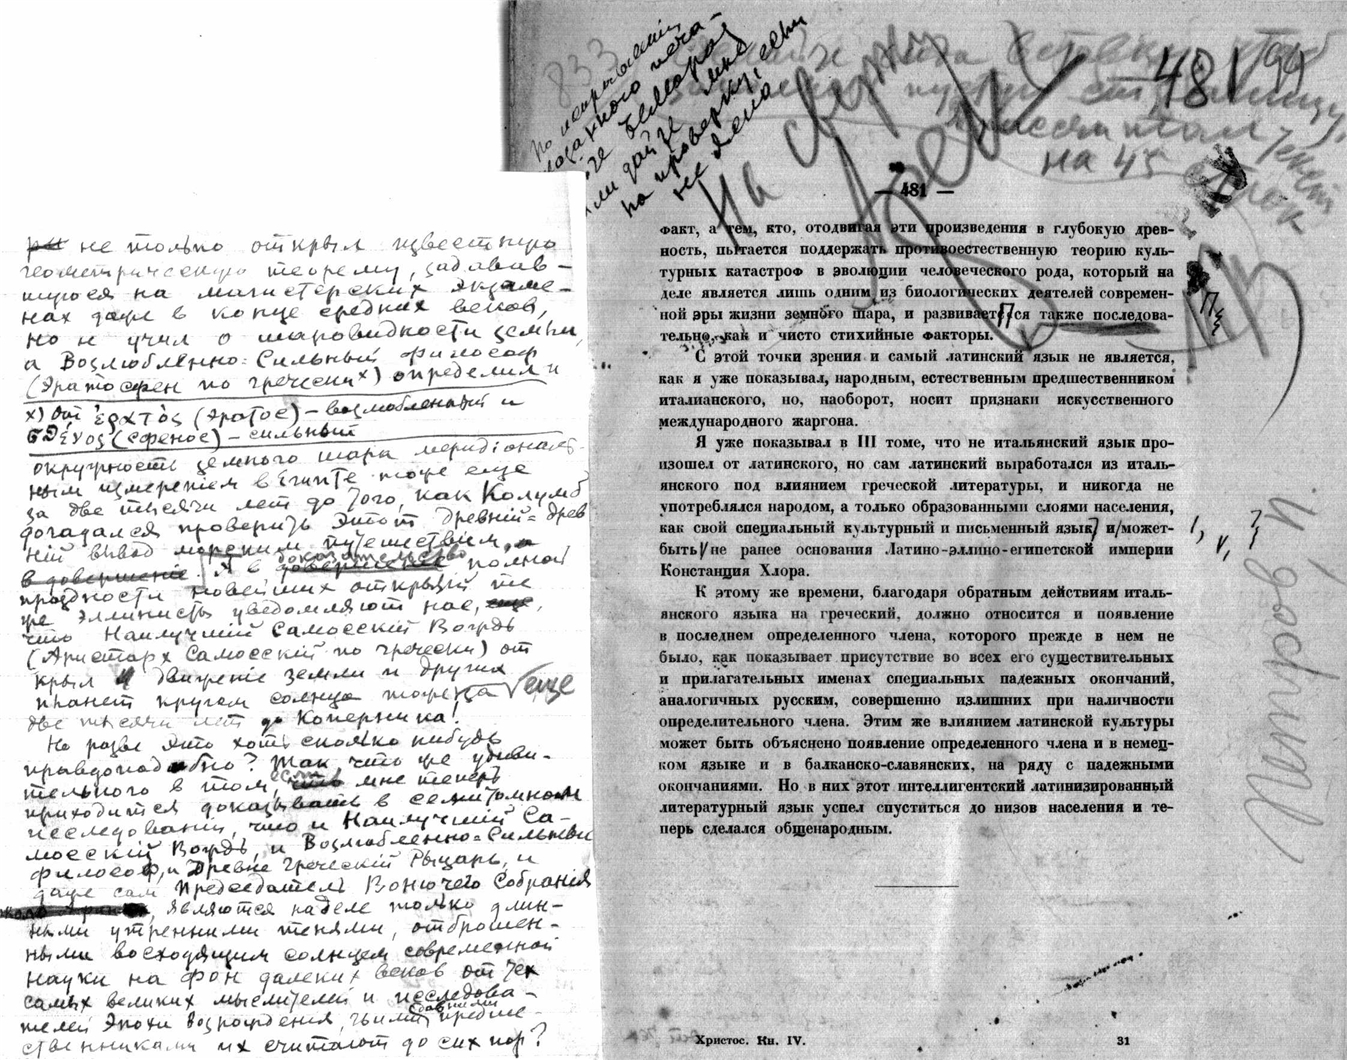 ри не только открыл известную
геометрическую теорему, задавав-
шуюся на магистерских экзаме-
нах даже в конце средних веков,
но и учил о шаровидкости земли,
а Возлюбленно-Сильный философ
(Эратосфен по гречески х) определил и
х) От ἐρατός (эратос) – возлюбленный и
σθένος (сфенос) – сильный
окружность земного шара меридиональ-
ным измерением в Египте тоже еще
за две тысячи лет до того, как Колумб
догадался проверить этот древний-древ-
ний вывод морским путешествием, а
в довершение. А в доказательство полной
праздности новейших открытий те
же эллинисты уведомляют нас, еще,
что Наилучший Самосский Вождь
(Аристарх Самосский по гречески) от
крыл и движение земли и других
планет кругом солнца тоже за еще
две тысячи лет до Коперника!
Но разве это хоть сколько нибудь
правдоподобно? Так что же удиви-
тельного в том, если что мне теперь
приходится доказывать в семитомном
исследовании, что и Наилучший Са-
мосский Вождь, и Возлюбленно-Сильный
философ, и Древне Греческий Рыцарь, и
даже сам Председатель Вонючего Собрания
являются на деле только длин-
ными утренними тенями, отброшен-
ными восходящим солнцем современной
науки на фон далеких веков от тех
самых великих мыслителей и исследова-
телей Эпохи возрождения, чьими предше-
ственниками их считают до сих пор?
833
по исправлении
указанного
или дайте мне
на проверку, если
не ясно
На сверку
481
на 45
— 481 —
факт, а тем, кто, отодвигая эти произведения в глубокую древ-
ность, пытается поддержать противоестественную теорию куль-
турных катастроф в эволюции человеческого рода, который на
деле является лишь одним из биологических деятелей современ-
ной эры жизни земного шара, и развивается также последова-
тельно, как и чисто стихийные факторы.
С этой точки зрения и самый латинский язык не является,
как я уже показывал, народным, естественным предшественником
италианского, но, наоборот, носит признаки искусственного
международного жаргона.
Я уже показывал в III томе, что не итальянский язык про-
изошел от латинского, но сам латинский выработался из италь-
янского под влиянием греческой литературы, и никогда не
употреблялся народом, а только образованными слоями населения,
как свой специальный культурный и письменный язык и может-
быть не ранее основания Латино-эллино-египетской империи
Констанция Хлора.
К этому же времени, благодаря обратным действиям италь-
янского языка на греческий, должно относится и появление
в последнем определенного члена, которого прежде в нем не
было, как показывает присутствие во всех его существительных
и прилагательных именах специальных падежных окончаний,
аналогичных русским, совершенно излишних при наличности
определительного члена. Этим же влиянием латинской культуры
может быть объяснено появление определенного члена и в немец-
ком языке и в балканско-славянских, на ряду с падежными
окончаниями. Но в них этот интеллигентский латинизированный
литературный язык успел спуститься до низов населения и те-
перь сделался общенародным.
Христос. Кн. IV. 31